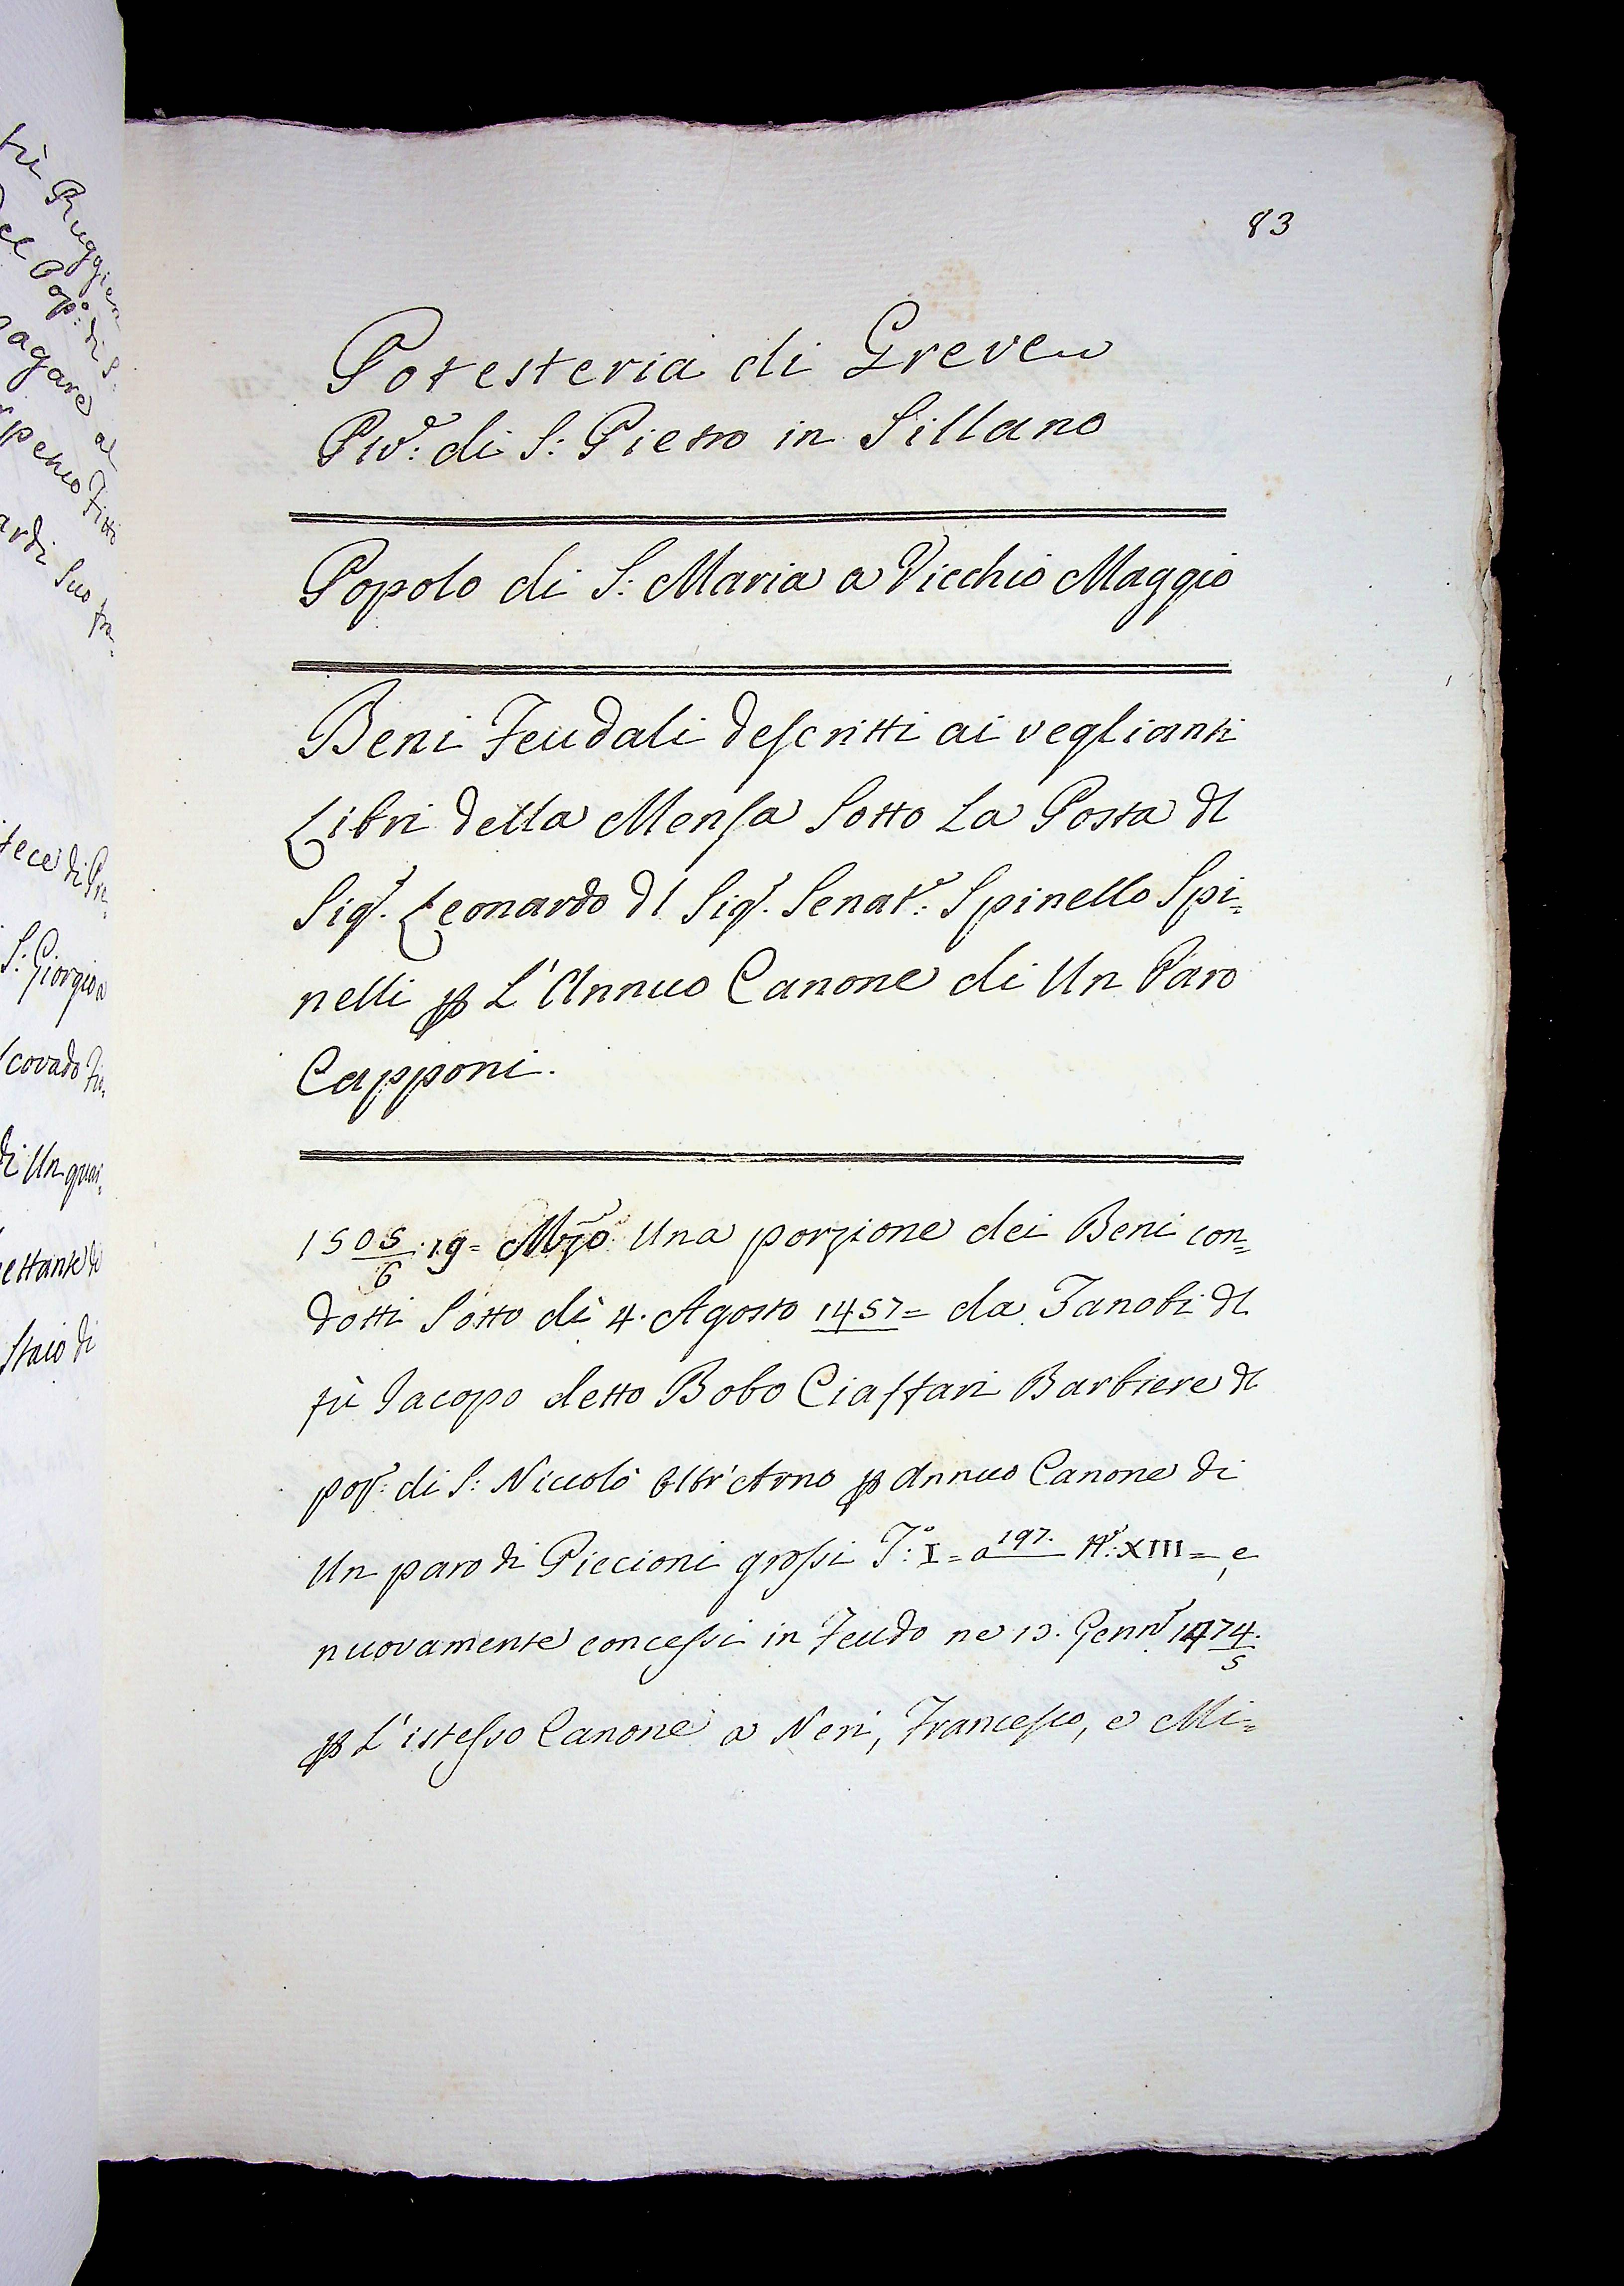 83
Potesteria di Greve
Piv.e di S: Pietro in Sillano
Popolo di S: Maria a Vicchio Maggio
Beni Feudali descritti ai veglianti
Libri della Mensa Sotto La Posta dl
Sig.r Leonardo dl Sig.r Senat.e: Spinello Spi=
nelli p L'Annuo Canone di Un Paro
Capponi.
1505/6 19= Mrzo Una porzione dei Beni con=
dotti Sotto dì 4. Agosto 1457= da Zanobi dl
fù Jacopo detto Bobo Ciaffari Barbiere dl
pop.o: di S: Niccolò Oltr'Arno p Annuo Canone di
Un paro di Piccioni grossi T.o: I= a 197. N.o: XIII=, e
nuovamente concessi in Feudo ne 13. Genn.o 1474/5.
p L'istesso Canone a Neri, Francesco, e Mi=
fù Ruggieri
el Pop.o: di S:
pagare al
ardi Suo
S: Giorgio a
di Un
Staio di